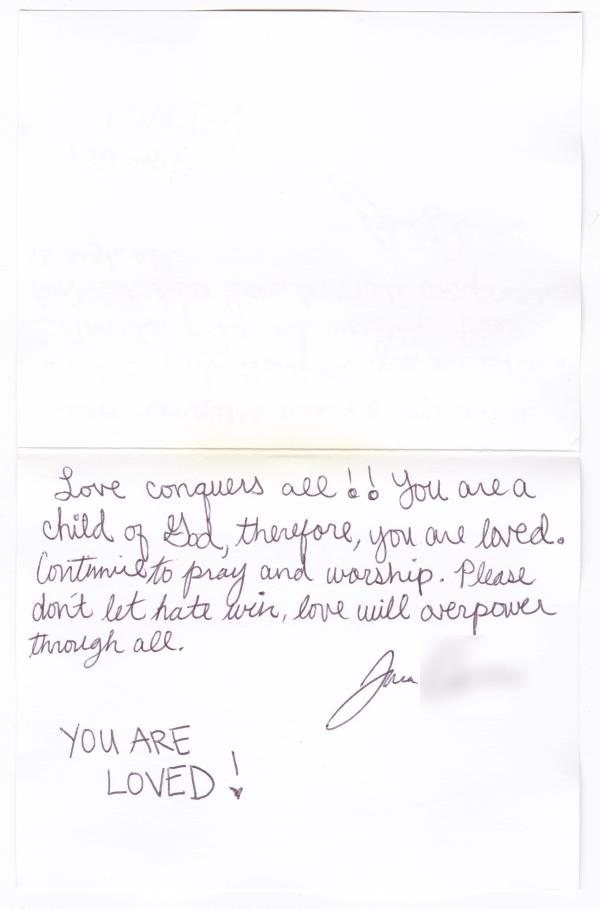 Love conquers all!! You are a
child of God, therefore, you are loved.
Continue to pray and worship. Please
don't let hate win, love will overpower
through all.
YOU ARE
LOVED!